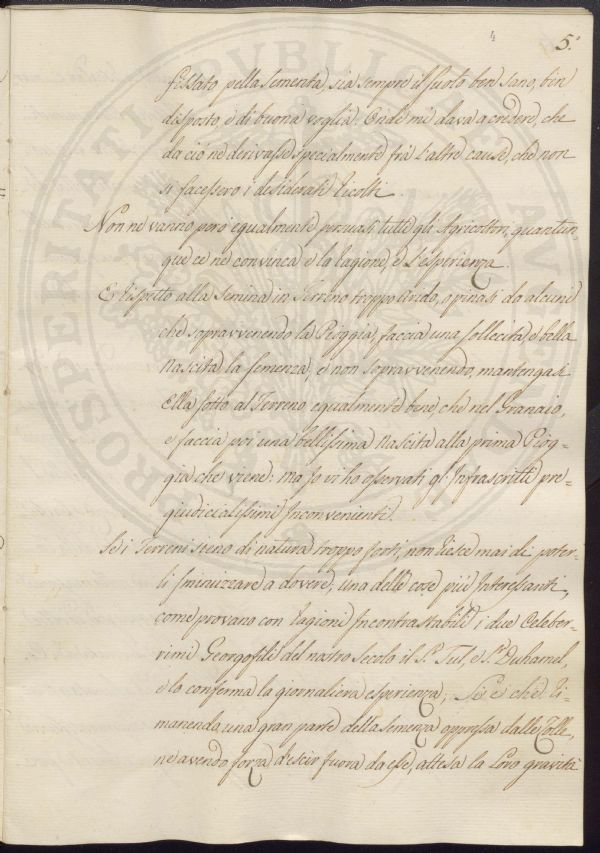 4
5.
fissato pella sementa, sia sempre il suolo ben sano, ben
disposto, e di buona voglia. Onde mi dava a credere, che
da ciò ne derivasse specialmente frà l'altre cause, che non
si facessero i desiderati Ricolti.
Non ne vanno però egualmente persuasi tutti gli Agricoltori, quantun-
que ce ne convinca e la Ragione, e l'esperienza.
E rispetto alla semina in Terreno troppo Arido, opinasi da alcuni
che sopravvenendo la Pioggia, faccia una sollecita, e bella
Nascita la semenza, e non sopravvenendo, mantengasi
Ella sotto al Terreno egualmente bene, che nel Granaio,
e faccia poi una bellissima Nascita alla prima Piog=
gia che viene: ma Io vi ho osservati gl'Infrascritti pre=
giudicialissimi Inconvenienti.
Se i Terreni sieno di natura troppo forti, non riesce mai di poter-
li sminuzzare a dovere, una delle cose più Interessanti,
come provano con ragioni Incontrastabili i due Celeber-
rimi Georgofili del nostro Secolo il Sr. Tul, e Sr. Duhamel,
e lo conferma la giornaliera esperienza; Si è che Ri-
manendo una gran parte della semenza oppressa dalle Zolle,
ne avendo forza d'escir fuora da esse, attesa la Loro gravità